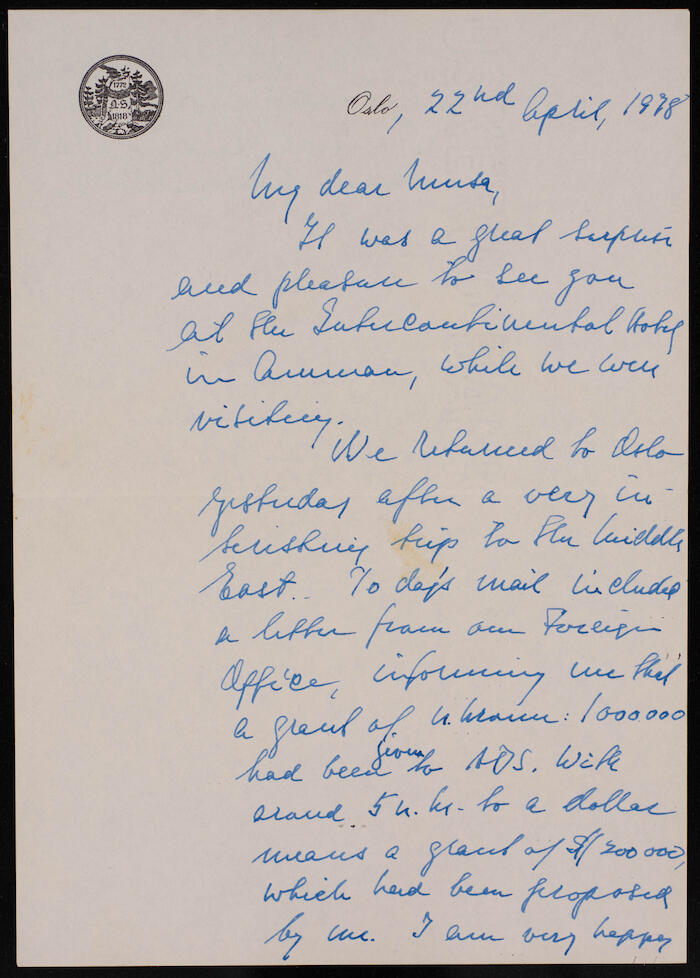 1772
O.S.
1818
Oslo, 22nd April, 1978
My dear Musa,
It was a great surprise
and pleasure to see you
at the Intercontinental Hotel
in Amman, while we were
visiting.
We returned to Oslo
yesterday after a very in-
teresting trip to the Middle
East. To day's mail included
a letter from our Foreign
Office, informing me that
a grant of n.kroner: 1000000
had been given to ADS. With
around 5 n.kr. to a dollar
means a grant of $ 200000,
which had been proposed
by me. I am very happy